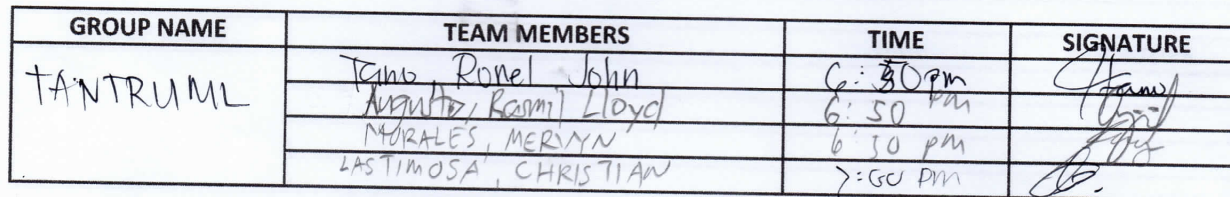 GROUP NAME TEAM MEMBERS TIME SIGNATURE
TANTRUML Tano, Ronel John 6:50pm
Augusto, Rasmil Lloyd 6:50 PM
MORALES, MERVYN 6:50 PM
LASTIMOSA, CHRISTIAN 7:00 PM